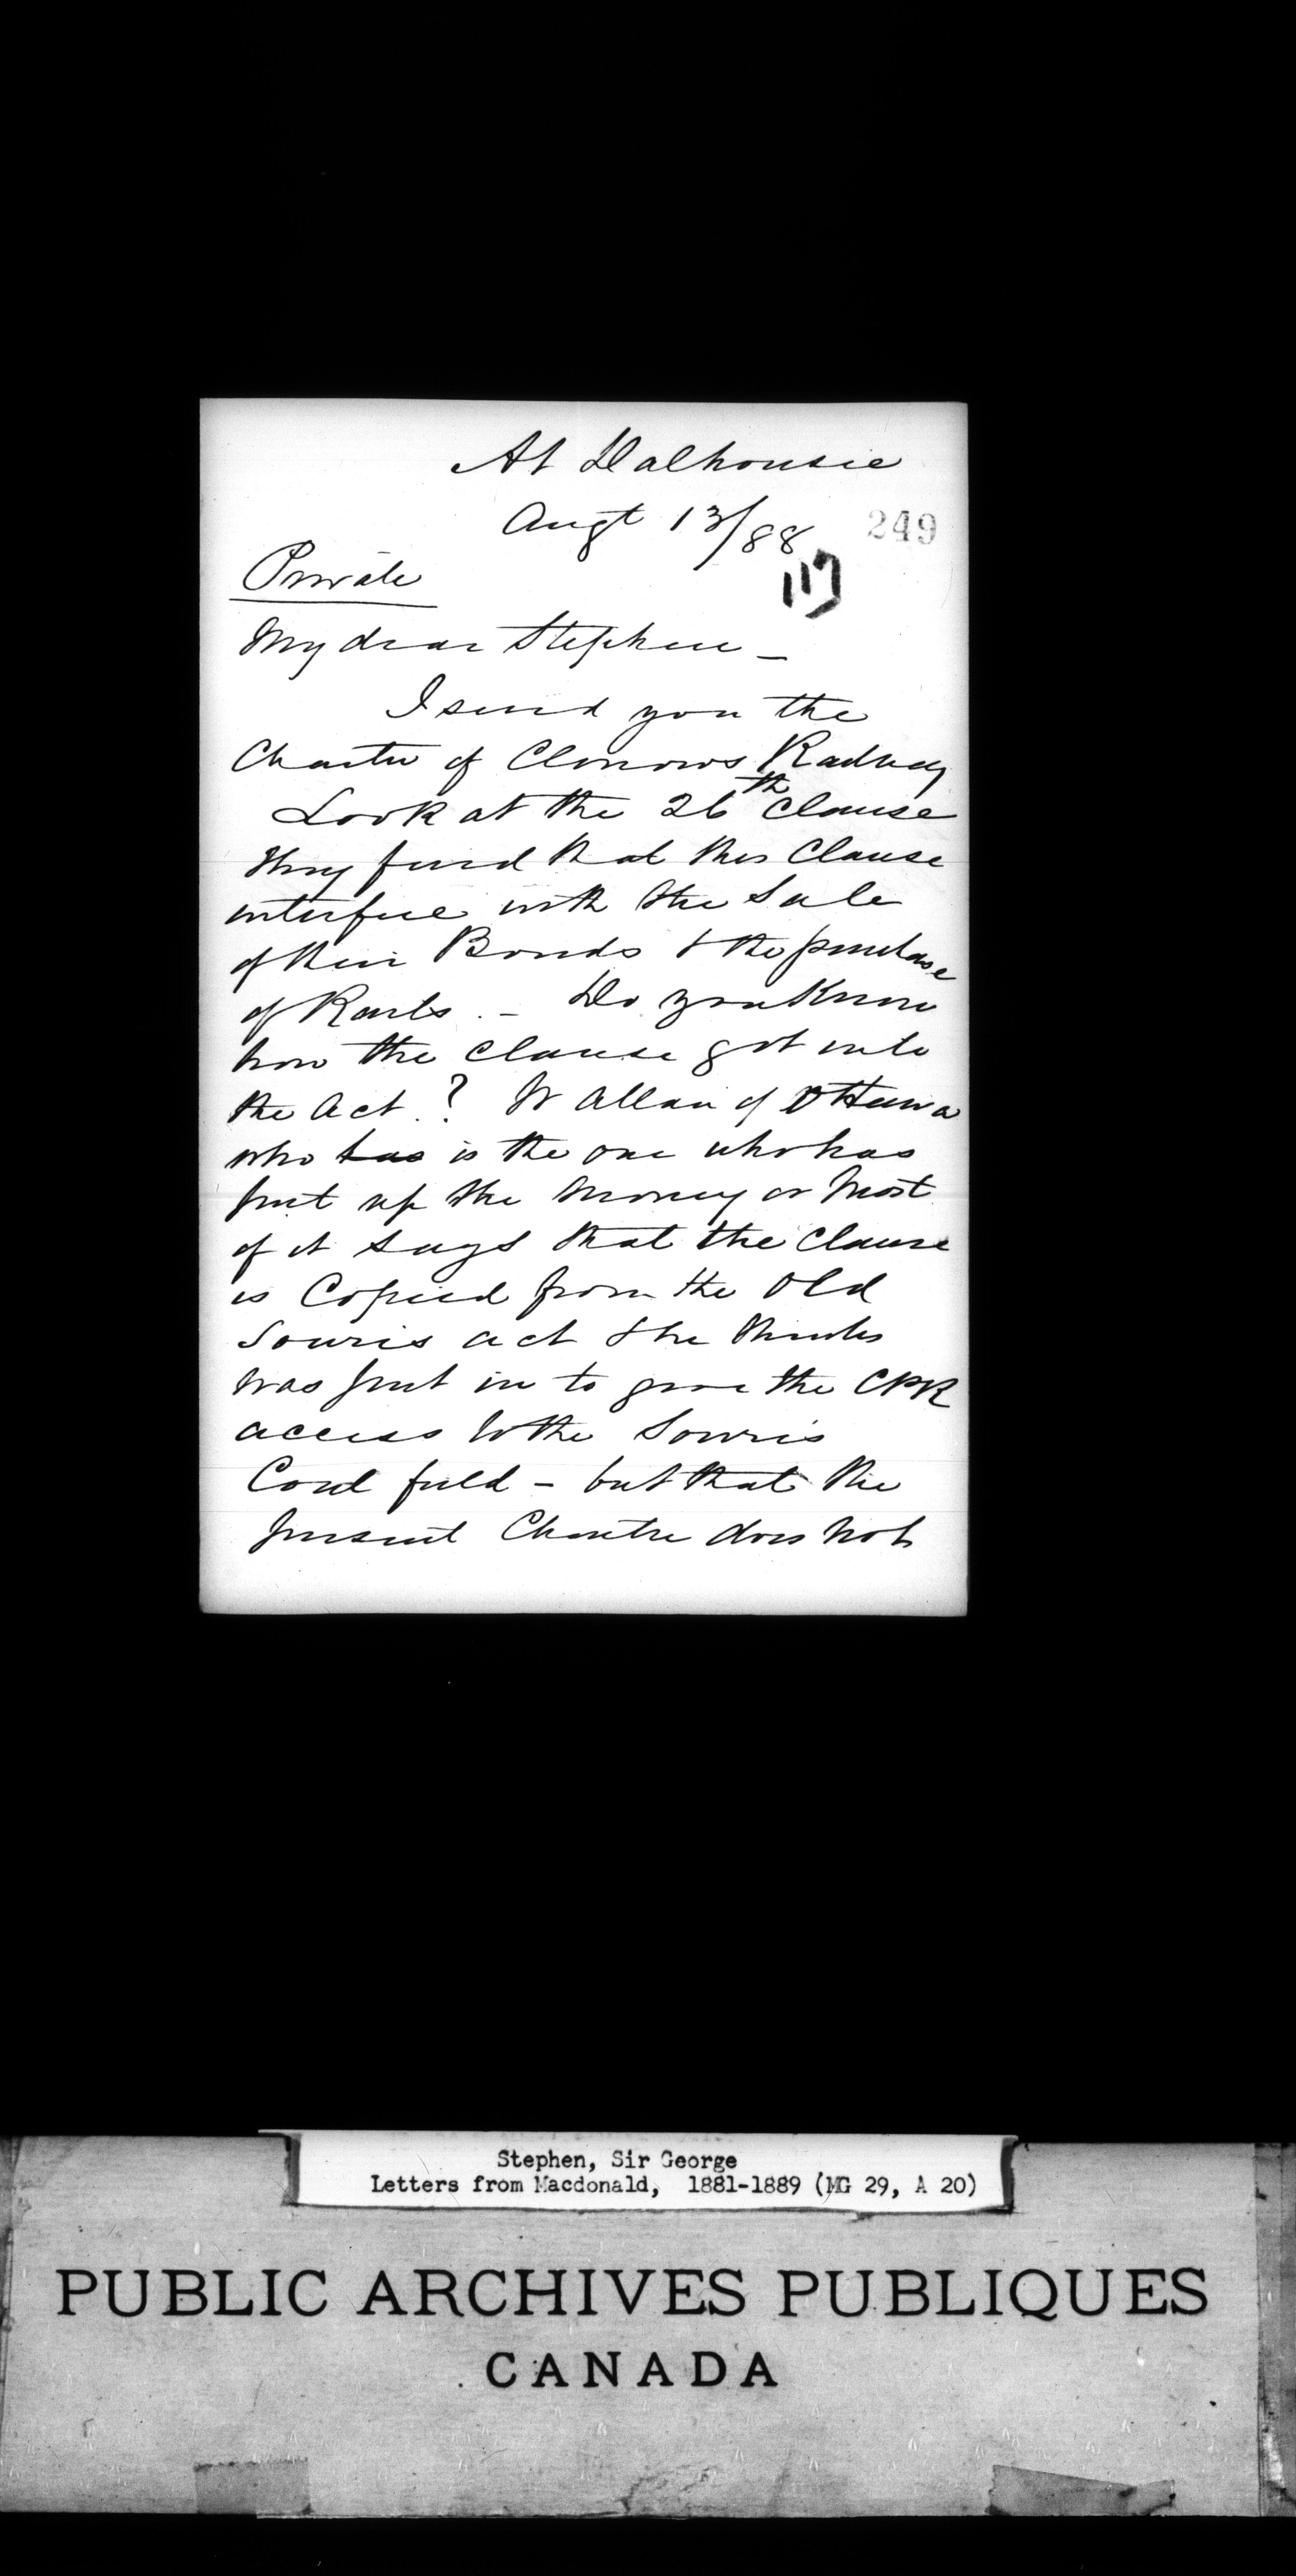 At Dalhousie
Augt 13/88
249
Private
My dear Stephen _
I send you the
Charter of Clemows Railway
Look at the 26th Clause
They find that this Clause
interfere with the Sale
of their Bonds & the purchase
of Rails. _ Do you Know
how the clause got into
the Act.? W Allan of Ottawa
who has is the one who has
put up the money or most
of it says that the Clause
is Copied from the Old
Souris act & he thinks
was put in to give the CPR
access to the Souris
Coal field - but that the
present Charter does not
Stephen, Sir George
Letters from Macdonald, 1881-1889 (MG 29, A 20)
PUBLIC ARCHIVES PUBLIQUES
CANADA